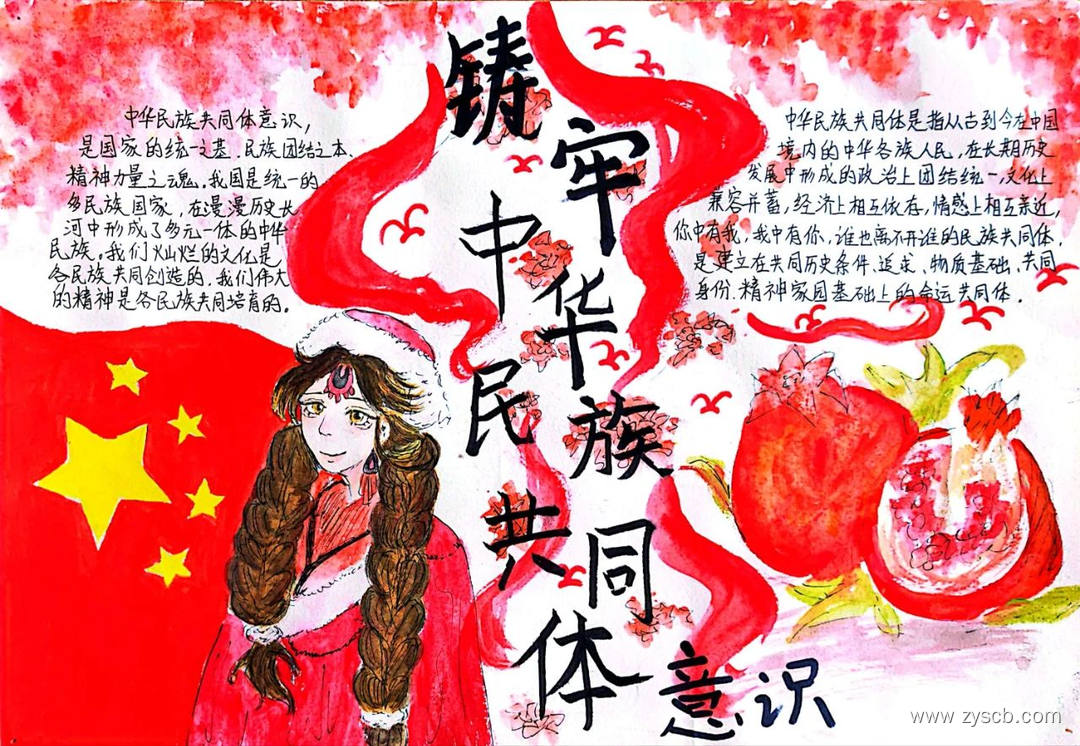 铸牢
中华
民族
共同
体
意识
中华民族共同体意识，
是国家的统一之基、民族团结之本、
精神力量之魂。我国是统一的
多民族国家，在漫漫历史长
河中形成了多元一体的中华
民族。我们灿烂的文化是
各民族共同创造的。我们伟大
的精神是各民族共同培育的。
中华民族共同体是指从古到今在中国
境内的中华各族人民，在长期历史
发展中形成的政治上团结统一，文化上
兼容并蓄，经济上相互依存，情感上相互亲近，
你中有我，我中有你，谁也离不开谁的民族共同体，
是建立在共同历史条件、追求、物质基础、共同
身份、精神家园基础上的命运共同体．
www.zyscb.com